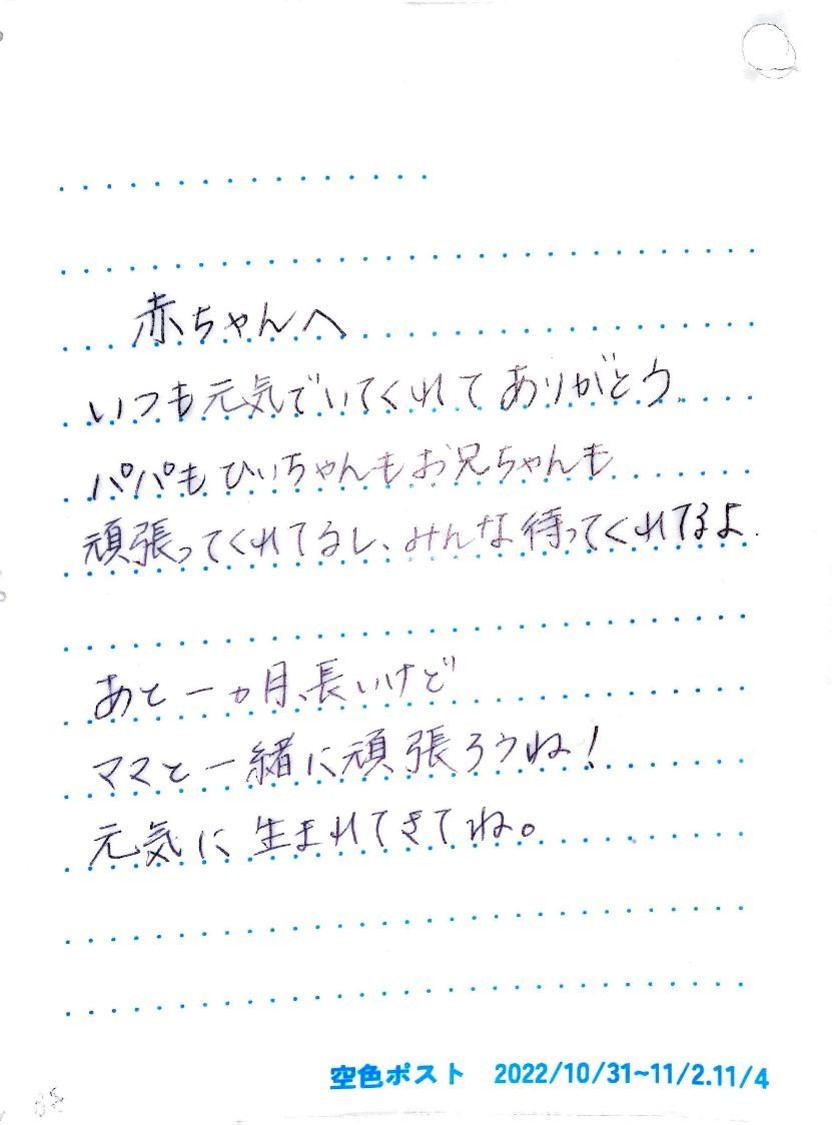 赤ちゃんへ
いつも元気でいてくれてありがとう。
パパもひいちゃんもお兄ちゃんも
頑張ってくれてるし、みんな待ってくれてるよ.
あと一ヵ月、長いけど
ママと一緒に頑張ろうね!
元気に生まれてきてね。
空色ポスト 2022/10/31~11/2.11/4